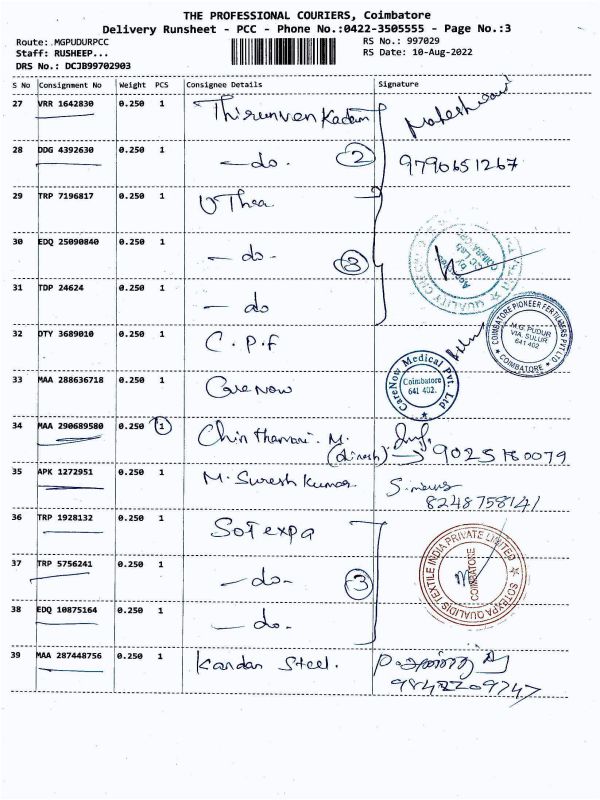 THE PROFESSIONAL COURIERS, Coimbatore
Delivery Runsheet - PCC - Phone No.:0422-3505555 - Page No.:3
Route: MGPUDURPCC RS No.: 997029
Staff: RUSHEEP... RS Date: 10-Aug-2022
DRS No.: DCJB99702903
S No Consignment No Weight PCS Consignee Details Signature
27 VRR 1642830 0.250 1 Thirunvenkadam Maheshwari
28 DDG 4392630 0.250 1 - do. 2 9790651267
29 TRP 7196817 0.250 1 U Thea
30 EDQ 25090840 0.250 1 - do. 3
31 TDP 24624 0.250 1 - do
COIMBATORE PIONEER FERTILISERS PVT LTD
M.G. PUDUR
VIA. SULUR
641 402
COIMBATORE
32 DTY 3689010 0.250 1 C.P.F
33 MAA 288636718 0.250 1 Care Now
CareNow Medical Pvt. Ltd
Coimbatore
641 402.
34 MAA 290689580 0.250 1 Chinthamani. M.
(dinesh) 9025160079
35 APK 1272951 0.250 1 M. Suresh Kumar
8248758141
36 TRP 1928132 0.250 1 Sotexpa
37 TRP 5756241 0.250 1 - do - 3
SOTEXPA QUALIDIS TEXTILE INDIA PRIVATE LIMITED
COIMBATORE
38 EDQ 10875164 0.250 1 - do.
39 MAA 287448756 0.250 1 Kandan Steel.
9842209747